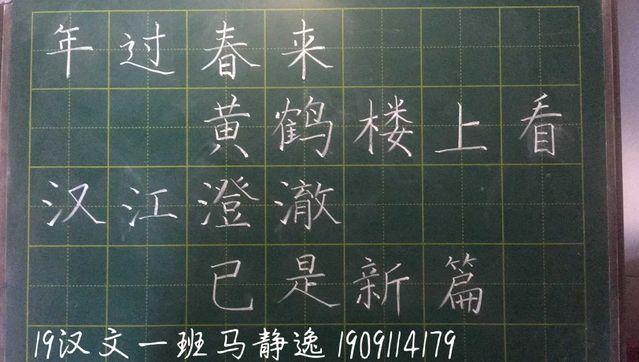 年过春来
黄鹤楼上看
汉江澄澈
已是新篇
19汉文一班马静逸1909114179